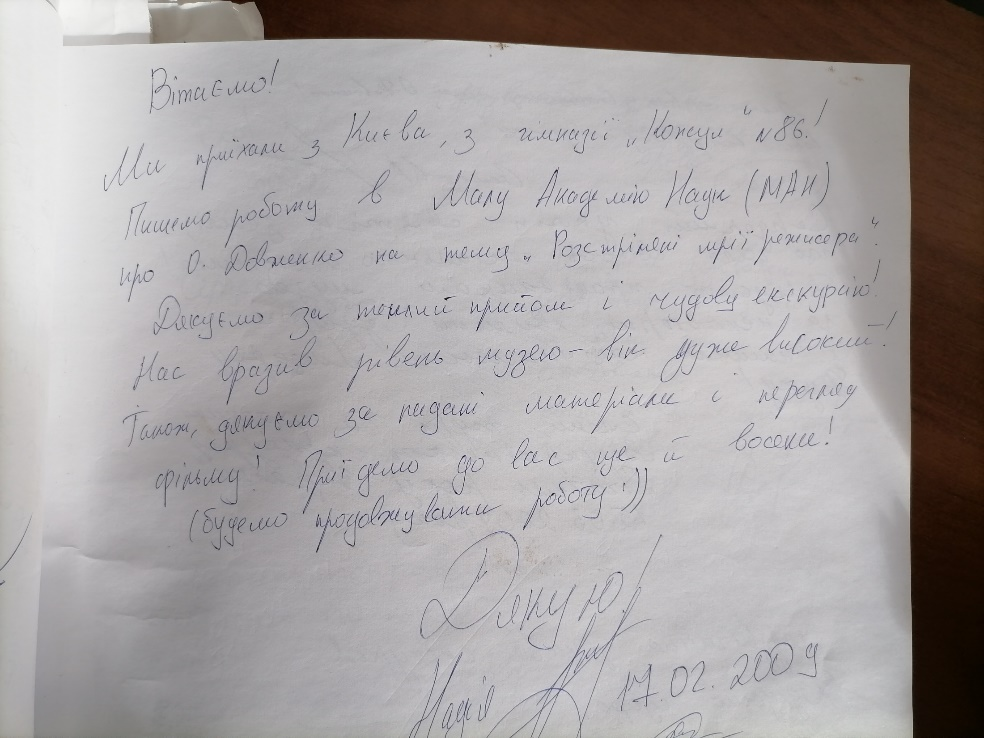 Вітаємо!
Ми приїхали з Києва, з гімназії „Консул“ №86!
Пишемо роботу в Малу Академію Наук (МАН)
про О. Довженко на тему „Розстріляні мрії режисера“.
Дякуємо за теплий прийом і чудову екскурсію!
Нас вразив рівень музею – він дуже високий!
Також, дякуємо за надані матеріали і перегляд
фільму! Приїдемо до вас ще й восени!
(будемо продовжувати роботу :))
Дякую!
Надія 17.02.2009